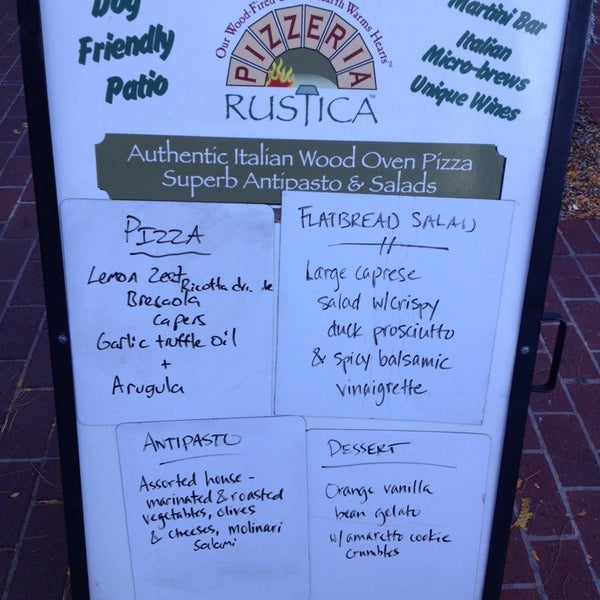 Dog
Friendly
Patio
Our Wood-Fired Hearth Warms Hearts™
PIZZERIA
RUSTICA™
Martini Bar
Italian
Micro-brews
Unique Wines
Authentic Italian Wood Oven Pizza
Superb Antipasto & Salads
PIZZA
Lemon Zest Ricotta
Bresaola
capers
Garlic truffle oil
+
Arugula
FLATBREAD SALAD
Large caprese
salad w/crispy
duck prosciutto
& spicy balsamic
vinaigrette
ANTIPASTO
Assorted house-
marinated & roasted
vegetables, olives
& cheeses, molinari
salami
DESSERT
Orange vanilla
bean gelato
w/amaretto cookie
crumbles